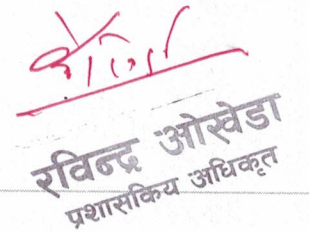 रविन्द्र ओखेडा
प्रशासकिय अधिकृत